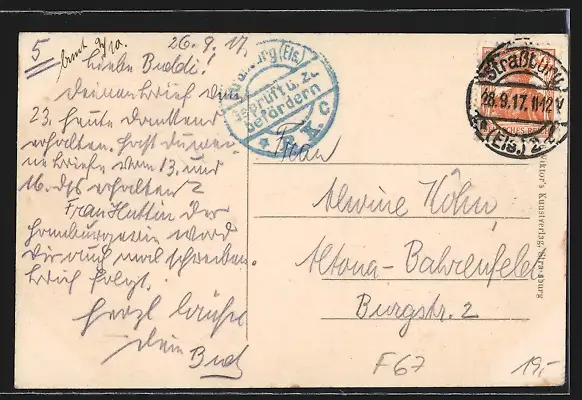 5
26.9.17.
Liebe Buddi!
Deinen Brief vom
23. heute dankend
erhalten. Hast du mei-
ne Briefe vom 13. und
16. ds erhalten?
Frau Huttin der
Hamburgerin werd
Dir auch mal schreiben.
Brief folgt.
Herzl. Grüße
Dein Bud
Straßburg (Els.)
Geprüft u. zu
befördern
A. C
Straßburg
26.9.17. 11-12 V
(Els.) 2
Frau
Alwine Köhn
Altona-Bahrenfeld
Burgstr. 2
Viktor's Kunstverlag, Strassburg
F67
19,-